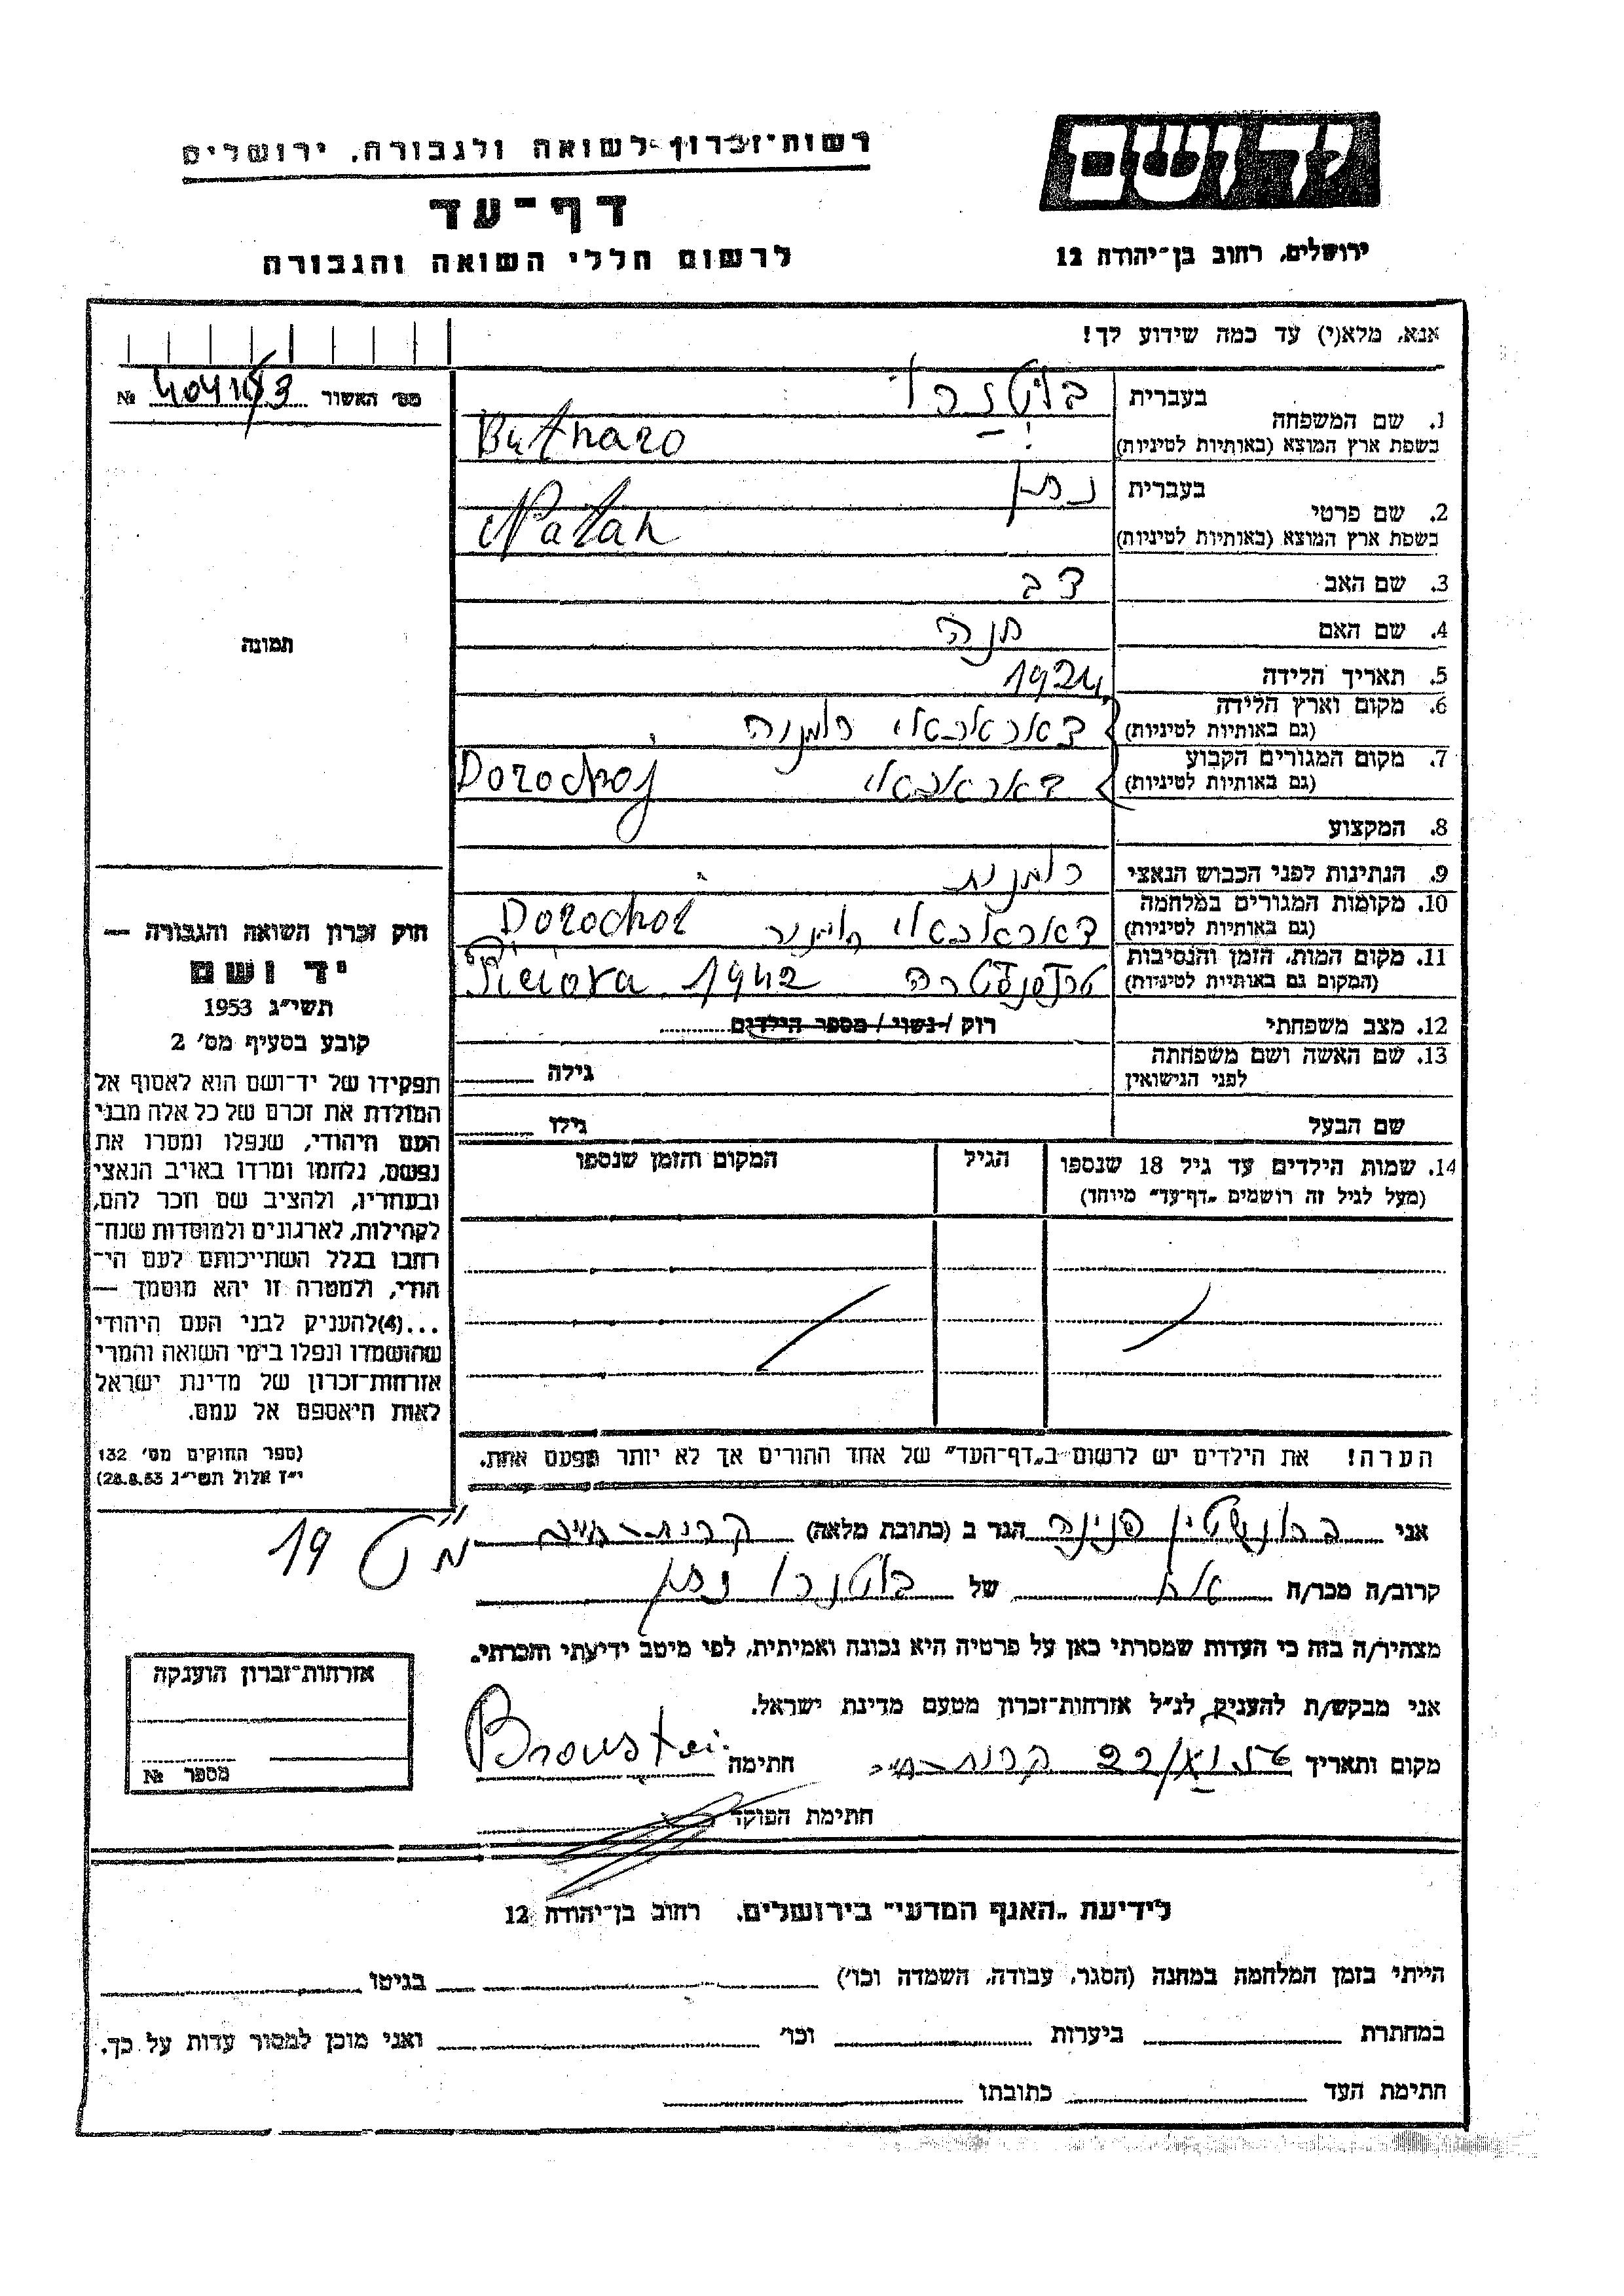 רשות־זכרון לשואה ולגבורה, ירושלים
דף־עד
לרשום חללי השואה והגבורה
יד ושם
ירושלים, רחוב בן־יהודה 12
אנא, מלא(י) עד כמה שידוע לך!
מס׳ האשור №
1. שם המשפחה
בעברית
בשפת ארץ המוצא (באותיות לטיניות)
Butnaro
2. שם פרטי
בעברית נתן
בשפת ארץ המוצא (באותיות לטיניות) Natan
3. שם האב דב
4. שם האם חנה
5. תאריך הלידה 1924
6. מקום וארץ הלידה
(גם באותיות לטיניות)
7. מקום המגורים הקבוע
(גם באותיות לטיניות) Dorochoj
8. המקצוע
9. הנתינות לפני הכבוש הנאצי
10. מקומות המגורים במלחמה
(גם באותיות לטיניות) Dorochoi
11. מקום המות, הזמן והנסיבות
(המקום גם באותיות לטיניות) 1942
12. מצב משפחתי רוק / נשוי / מספר הילדים
13. שם האשה ושם משפחתה
לפני הנישואין גילה
שם הבעל גילו
14. שמות הילדים עד גיל 18 שנספו
(מעל לגיל זה רושמים „דף־עד״ מיוחד)
הגיל
המקום והזמן שנספו
הערה! את הילדים יש לרשום ב„דף־העד״ של אחד ההורים אך לא יותר מפעם אחת.
תמונה
חוק זכרון השואה והגבורה —
יד ושם
תשי״ג 1953
קובע בסעיף מס׳ 2
תפקידו של יד־ושם הוא לאסוף אל
המולדת את זכרם של כל אלה מבני
העם היהודי, שנפלו ומסרו את
נפשם, נלחמו ומרדו באויב הנאצי
ובעוזריו, ולהציב שם וזכר להם,
לקהילות, לארגונים ולמוסדות שנח־
רהבו בגלל השתייכותם לעם הי־
הודי, ולמטרה זו יהא מוסמך —
...(4)להעניק לבני העם היהודי
שהושמדו ונפלו בימי השואה והמרי
אזרחות־זכרון של מדינת ישראל
לאות היאספם אל עמם.
(ספר החוקים מס׳ 132
י״ז אלול תשי״ג 28.8.53)
אני ברונשטיין פנינה הגר ב (כתובת מלאה)
19
קרוב/ה מכר/ה של בוטנרו נתן
מצהיר/ה בזה כי העדות שמסרתי כאן על פרטיה היא נכונה ואמיתית, לפי מיטב ידיעתי והכרתי.
אני מבקש/ת להעניק לנ״ל אזרחות־זכרון מטעם מדינת ישראל.
מקום ותאריך חתימה
חתימת הפוקד
אזרחות־זכרון הוענקה
מספר №
לידיעת „האגף המדעי״ בירושלים, רחוב בן־יהודה 12
הייתי בזמן המלחמה במחנה (הסגר, עבודה, השמדה וכו׳) בגיטו
במחתרת ביערות וכו׳ ואני מוכן למסור עדות על כך.
חתימת העד כתובתו